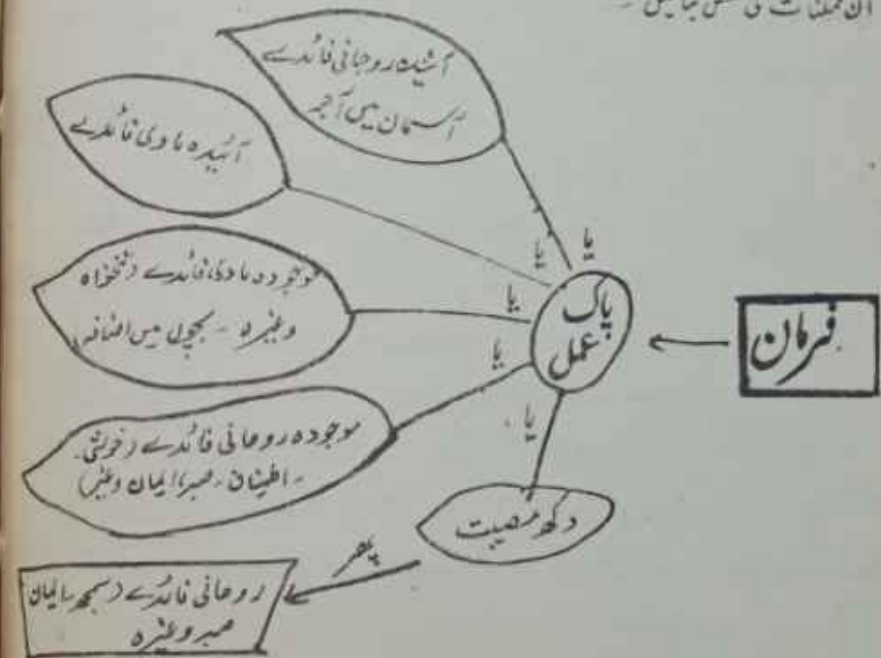 ان ممکنات کی شکل بنائیں -
آئندہ روحانی فائدے
آسمان میں اجر
آئندہ مادی فائدے
موجودہ مادی فائدے (تنخواہ
وغیرہ - بچوں میں اضافہ)
موجودہ روحانی فائدے (خوشی -
اطمینان - صبر، ایمان وغیرہ)
یا
یا
یا
یا
یا
پاک
عمل
فرمان
دکھ مصیبت
پھر
روحانی فائدے (سمجھ، ایمان
صبر وغیرہ